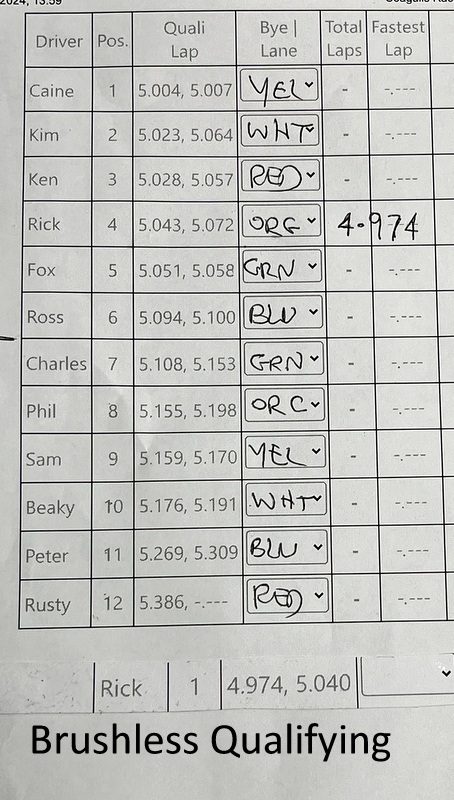 2024, 13:59
Driver Pos. Quali Lap Bye | Lane Total Laps Fastest Lap
Caine 1 5.004, 5.007 YEL - -.---
Kim 2 5.023, 5.064 WHT - -.---
Ken 3 5.028, 5.057 RED - -.---
Rick 4 5.043, 5.072 ORG 4.974
Fox 5 5.051, 5.058 GRN - -.---
Ross 6 5.094, 5.100 BLU - -.---
Charles 7 5.108, 5.153 GRN - -.---
Phil 8 5.155, 5.198 ORG - -.---
Sam 9 5.159, 5.170 YEL - -.---
Beaky 10 5.176, 5.191 WHT - -.---
Peter 11 5.269, 5.309 BLU - -.---
Rusty 12 5.386, -.--- RED - -.---
Rick 1 4.974, 5.040
Brushless Qualifying